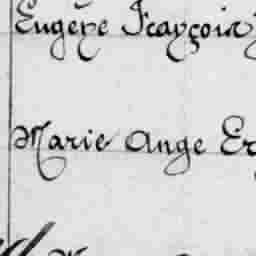 Eugène François
Marie Ange